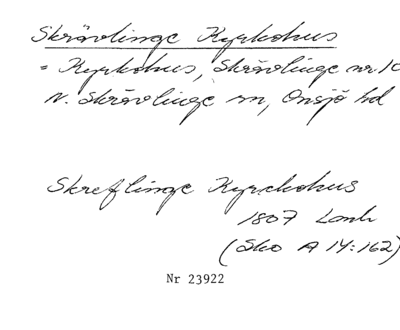 Skrävlinge Kyrkohus
= Kyrkohus, Skrävlinge nr 10
N. Skrävlinge sn, Onsjö hd
Skreflinge Kyrckohus
1807 Lantm
(Sko A 14:162)
Nr 23922